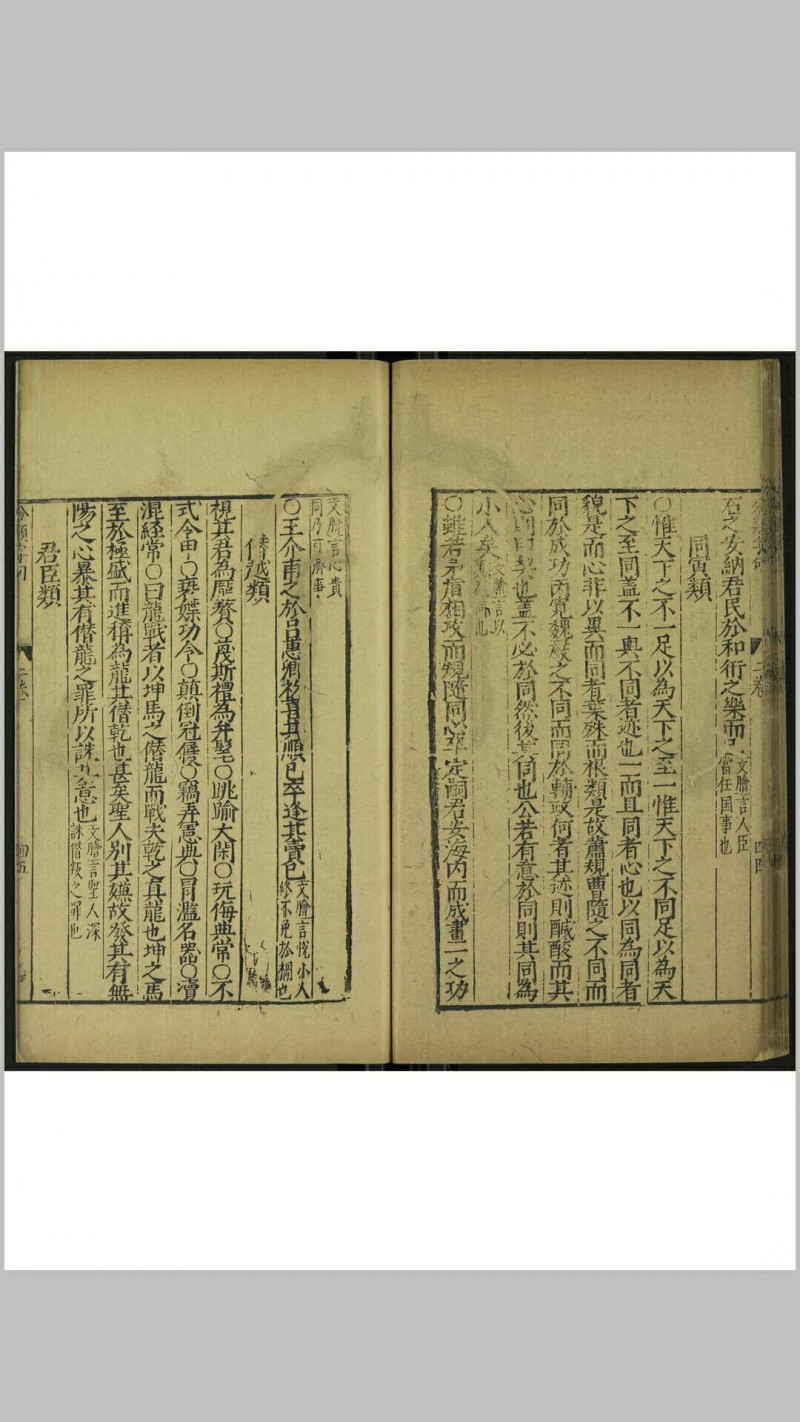 石之安納君民於和衎之樂而
文膽言人臣
當任国事也
同寅類
○惟天下之不一足以為天下之至一惟天下之不同足以為天
下之至同蓋不一與不同者迹也一而且同者心也以同為同者
貌是而心非以異而同者葉殊而根類是故蕭規曹隨之不同而
同於成功丙寬魏嚴之不同而同於輔政何者其迹則醎酸而其
心則印契也蓋不必於同然後其同也公若有意於同則其同為
小人矣
文膽言以
○雖若矛盾相攻而規隨同心卒定嗣君安海内而成畫一之功
文膽言心貴
同乃可濟事
○王介甫之於吕惠卿初喜其順已卒逢其賣已
文膽言悅小人
終不免於禍也
僣越類
視其君為庬贅○蔑斯禮為弁髦○跳踰大閑○玩侮典常○不
式令甲○䙝嫖功令○顛倒冠屨○竊弄憲典○冐濫名器○瀆
混經常○曰龍戰者以坤馬之僣龍而戰夫乾之真龍也坤之馬
至於極盛而進稱為龍其僣乾也甚矣聖人別其嫌故發其有無
陽之心暴其有僣龍之罪所以誅其意也
文膽言聖人深
誅僣叛之罪也
君臣類